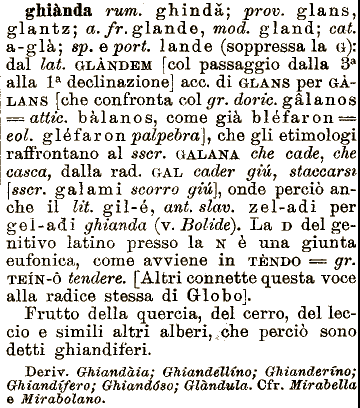 ghiànda rum. ghindă; prov. glans,
glantz; a. fr. glande, mod. gland; cat.
a-glà; sp. e port. lande (soppressa la G):
dal lat. GLÀNDEM [col passaggio dalla 3ª
alla 1ª declinazione] acc. di GLANS per GÀ-
LANS [che confronta col gr. doric. gâlanos
= attic. bàlanos, come già bléfaron =
eol. gléfaron palpebra], che gli etimologi
raffrontano al sscr. GALANA che cade, che
casca, dalla rad. GAL cader giú, staccarsi
[sscr. galami scorro giú], onde perciò an-
che il lit. gil-é, ant. slav. zel-adi per
gel-adi ghianda (v. Bolide). La D del ge-
nitivo latino presso la N è una giunta
eufonica, come avviene in TÈNDO = gr.
TEÍN-ô tendere. [Altri connette questa voce
alla radice stessa di Globo].
Frutto della quercia, del cerro, del lec-
cio e simili altri alberi, che perciò sono
detti ghiandiferi.
Deriv. Ghiandàia; Ghiandellíno; Ghianderíno;
Ghiandífero; Ghiandóso; Glàndula. Cfr. Mirabella
e Mirabolano.